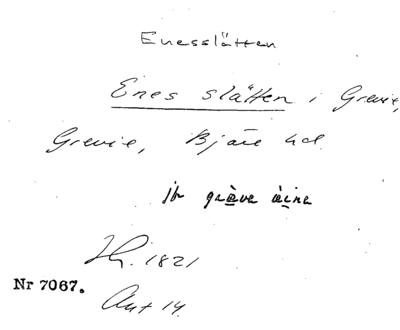 Enesslätten
Enes slätten i Grevie,
Grevie, Bjäre hd
gräva
Hy. 1821
Nr 7067.
Ant 14.